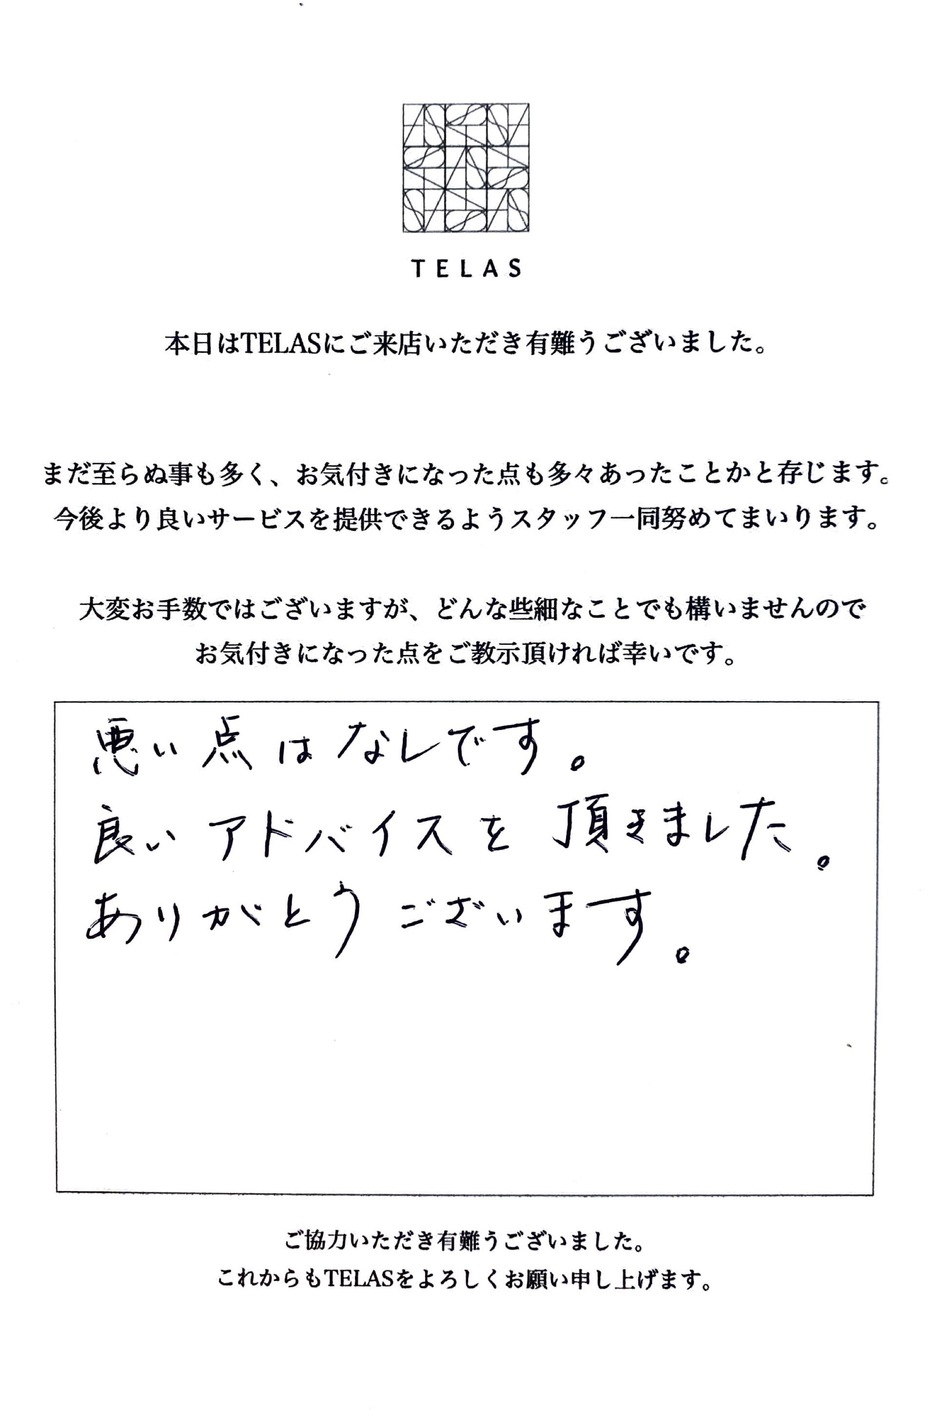 TELAS
本日はTELASにご来店いただき有難うございました。
まだ至らぬ事も多く、お気付きになった点も多々あったことかと存じます。
今後より良いサービスを提供できるようスタッフ一同努めてまいります。
大変お手数ではございますが、どんな些細なことでも構いませんので
お気付きになった点をご教示頂ければ幸いです。
悪い点はなしです。
良いアドバイスを頂きました。
ありがとうございます。
ご協力いただき有難うございました。
これからもTELASをよろしくお願い申し上げます。